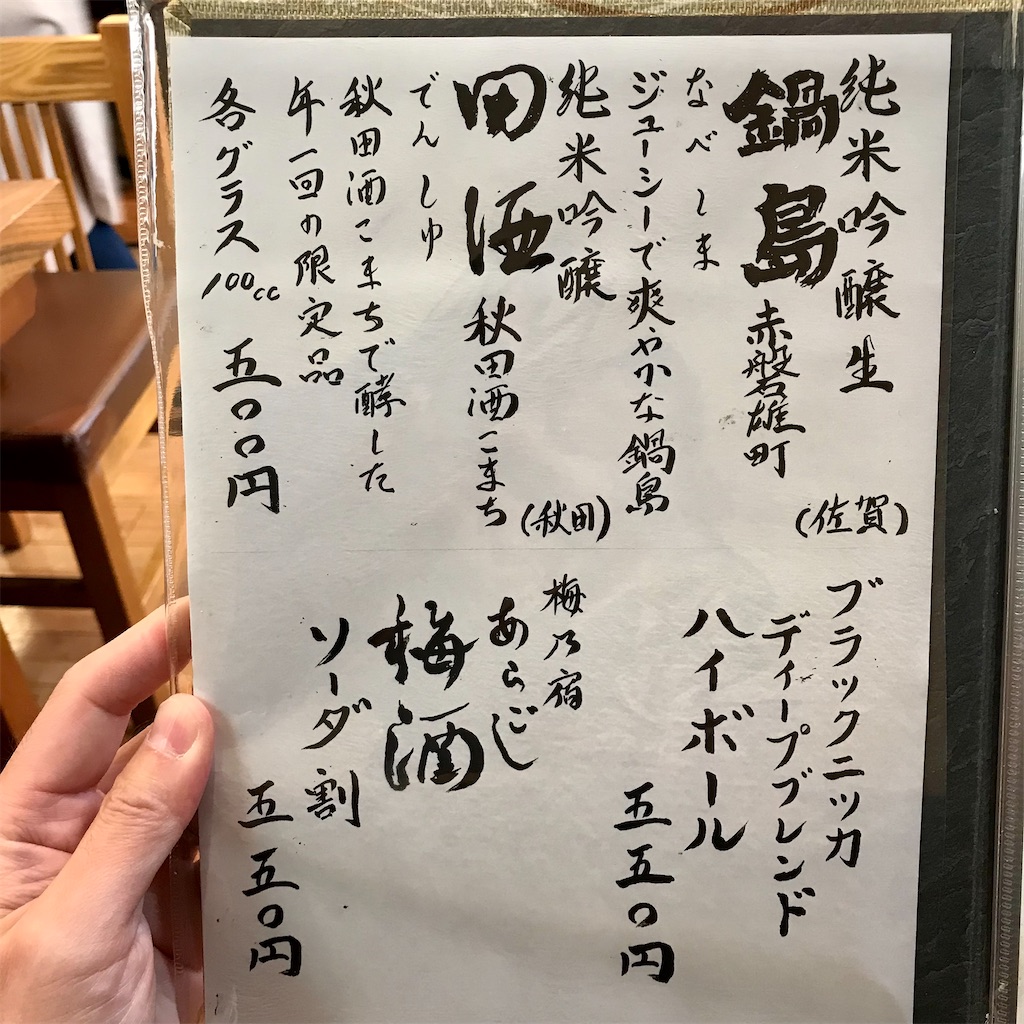 純米吟醸生
鍋島 赤磐雄町
(佐賀)
なべしま
ジューシーで爽やかな鍋島
純米吟醸
田酒 秋田酒こまち
(秋田)
でんしゅ
秋田酒こまちで酵した
年一回の限定品
各グラス100cc 五〇〇円
ブラックニッカ
ディープブレンド
ハイボール
五五〇円
梅乃宿
あらごし
梅酒
ソーダ割
五五〇円